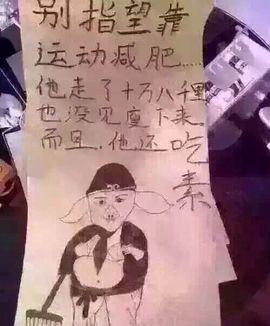 别指望靠
运动减肥……
他走了十万八千里
也没见瘦下来
而且.他还吃素